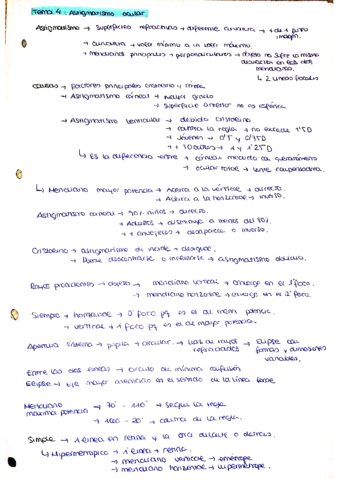 Tema 4: Astigmatismo ocular.
Astigmatismo → superficies refractivas → diferente curvatura → + de 1 punto imagen.
→ curvatura → valor mínimo a un valor máximo
→ meridianos principales → perpendiculares → objeto no sufre la misma desviación en cada
meridiano.
↳ 2 líneas focales
causas → factores principales cristalino y córnea
→ Astigmatismo corneal → mayor grado
→ superficie anterior no es esférica
→ Astigmatismo lenticular → debido cristalino
→ contra la regla → no excede 1'5D
→ Jóvenes → 0'5 y 0'75D
→ 1 y 1'25D
↳ Es la diferencia entre → corneal medido
→ ocular total → lente compensadora.
↳ Meridiano mayor potencia → Acerca a la vertical → directo.
→ Acerca a la horizontal → inverso.
Astigmatismo corneal → 90% niños → directo.
→ Adultos → disminuye a menos del 80%
→ desaparece o inverso.
Cristalino → astigmatismo
→ Puede → astigmatismo ocular.
Rayos procedentes → objeto → meridiano vertical → converge en el 1º foco.
→ meridiano horizontal → converge en el 2º foco.
Siempre → horizontal → 2º foco pq es el menor potencia.
→ vertical → 1º foco pq es el de mayor potencia.
Apertura sistema → pupila → circular → haz de rayos refractados → Elipse con formas y dimensiones variables.
Entre las dos líneas → círculo de mínima confusión
Elipse → eje mayor orientado en el sentido de la línea focal.
Meridiano máxima potencia → 70º - 110º → según la regla
→ 160 - 20º → contra la regla.
Simple → 1 línea en retina y la otra delante o detrás.
↳ Hipermetrópico → 1 línea → retina.
→ meridiano vertical → emétrope.
→ meridiano horizontal → hipermétrope.